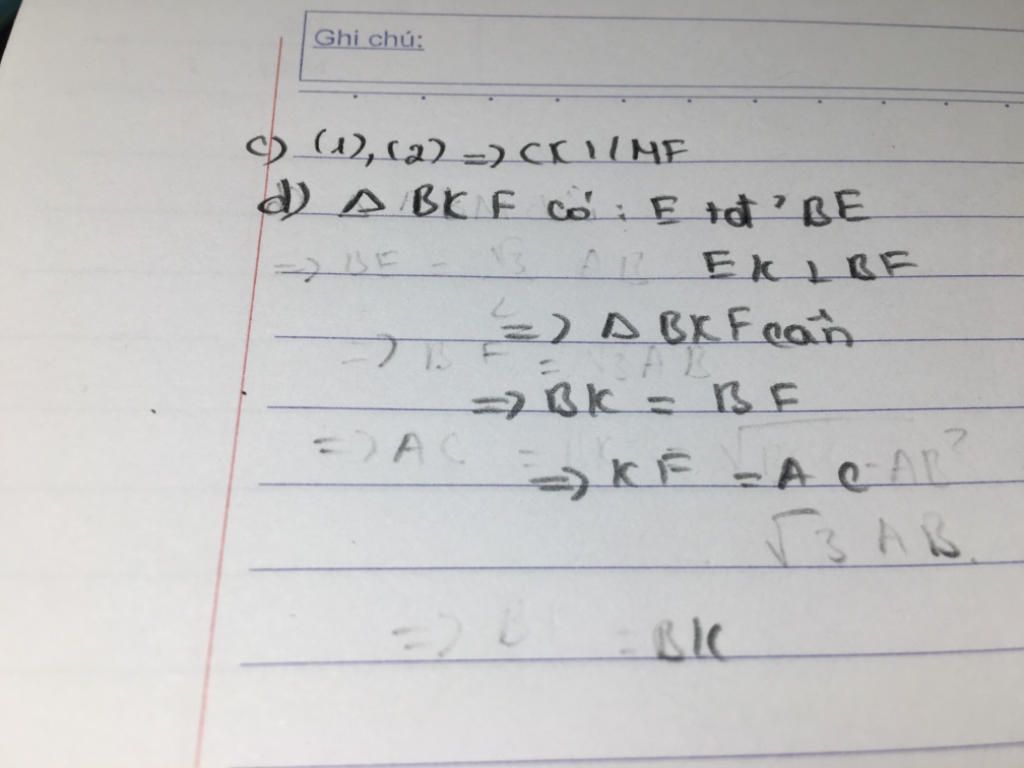 Ghi chú:
c) (1), (2) => CK // MF
d) Δ BKF có : E tđ BE
=> BF = √3 AB EK ⊥ BF
=> Δ BKF cân
=> BF = √3 AB
=> BK = BF
=> AC =
=> KF = AC - AB²
√3 AB.
=> B = BK